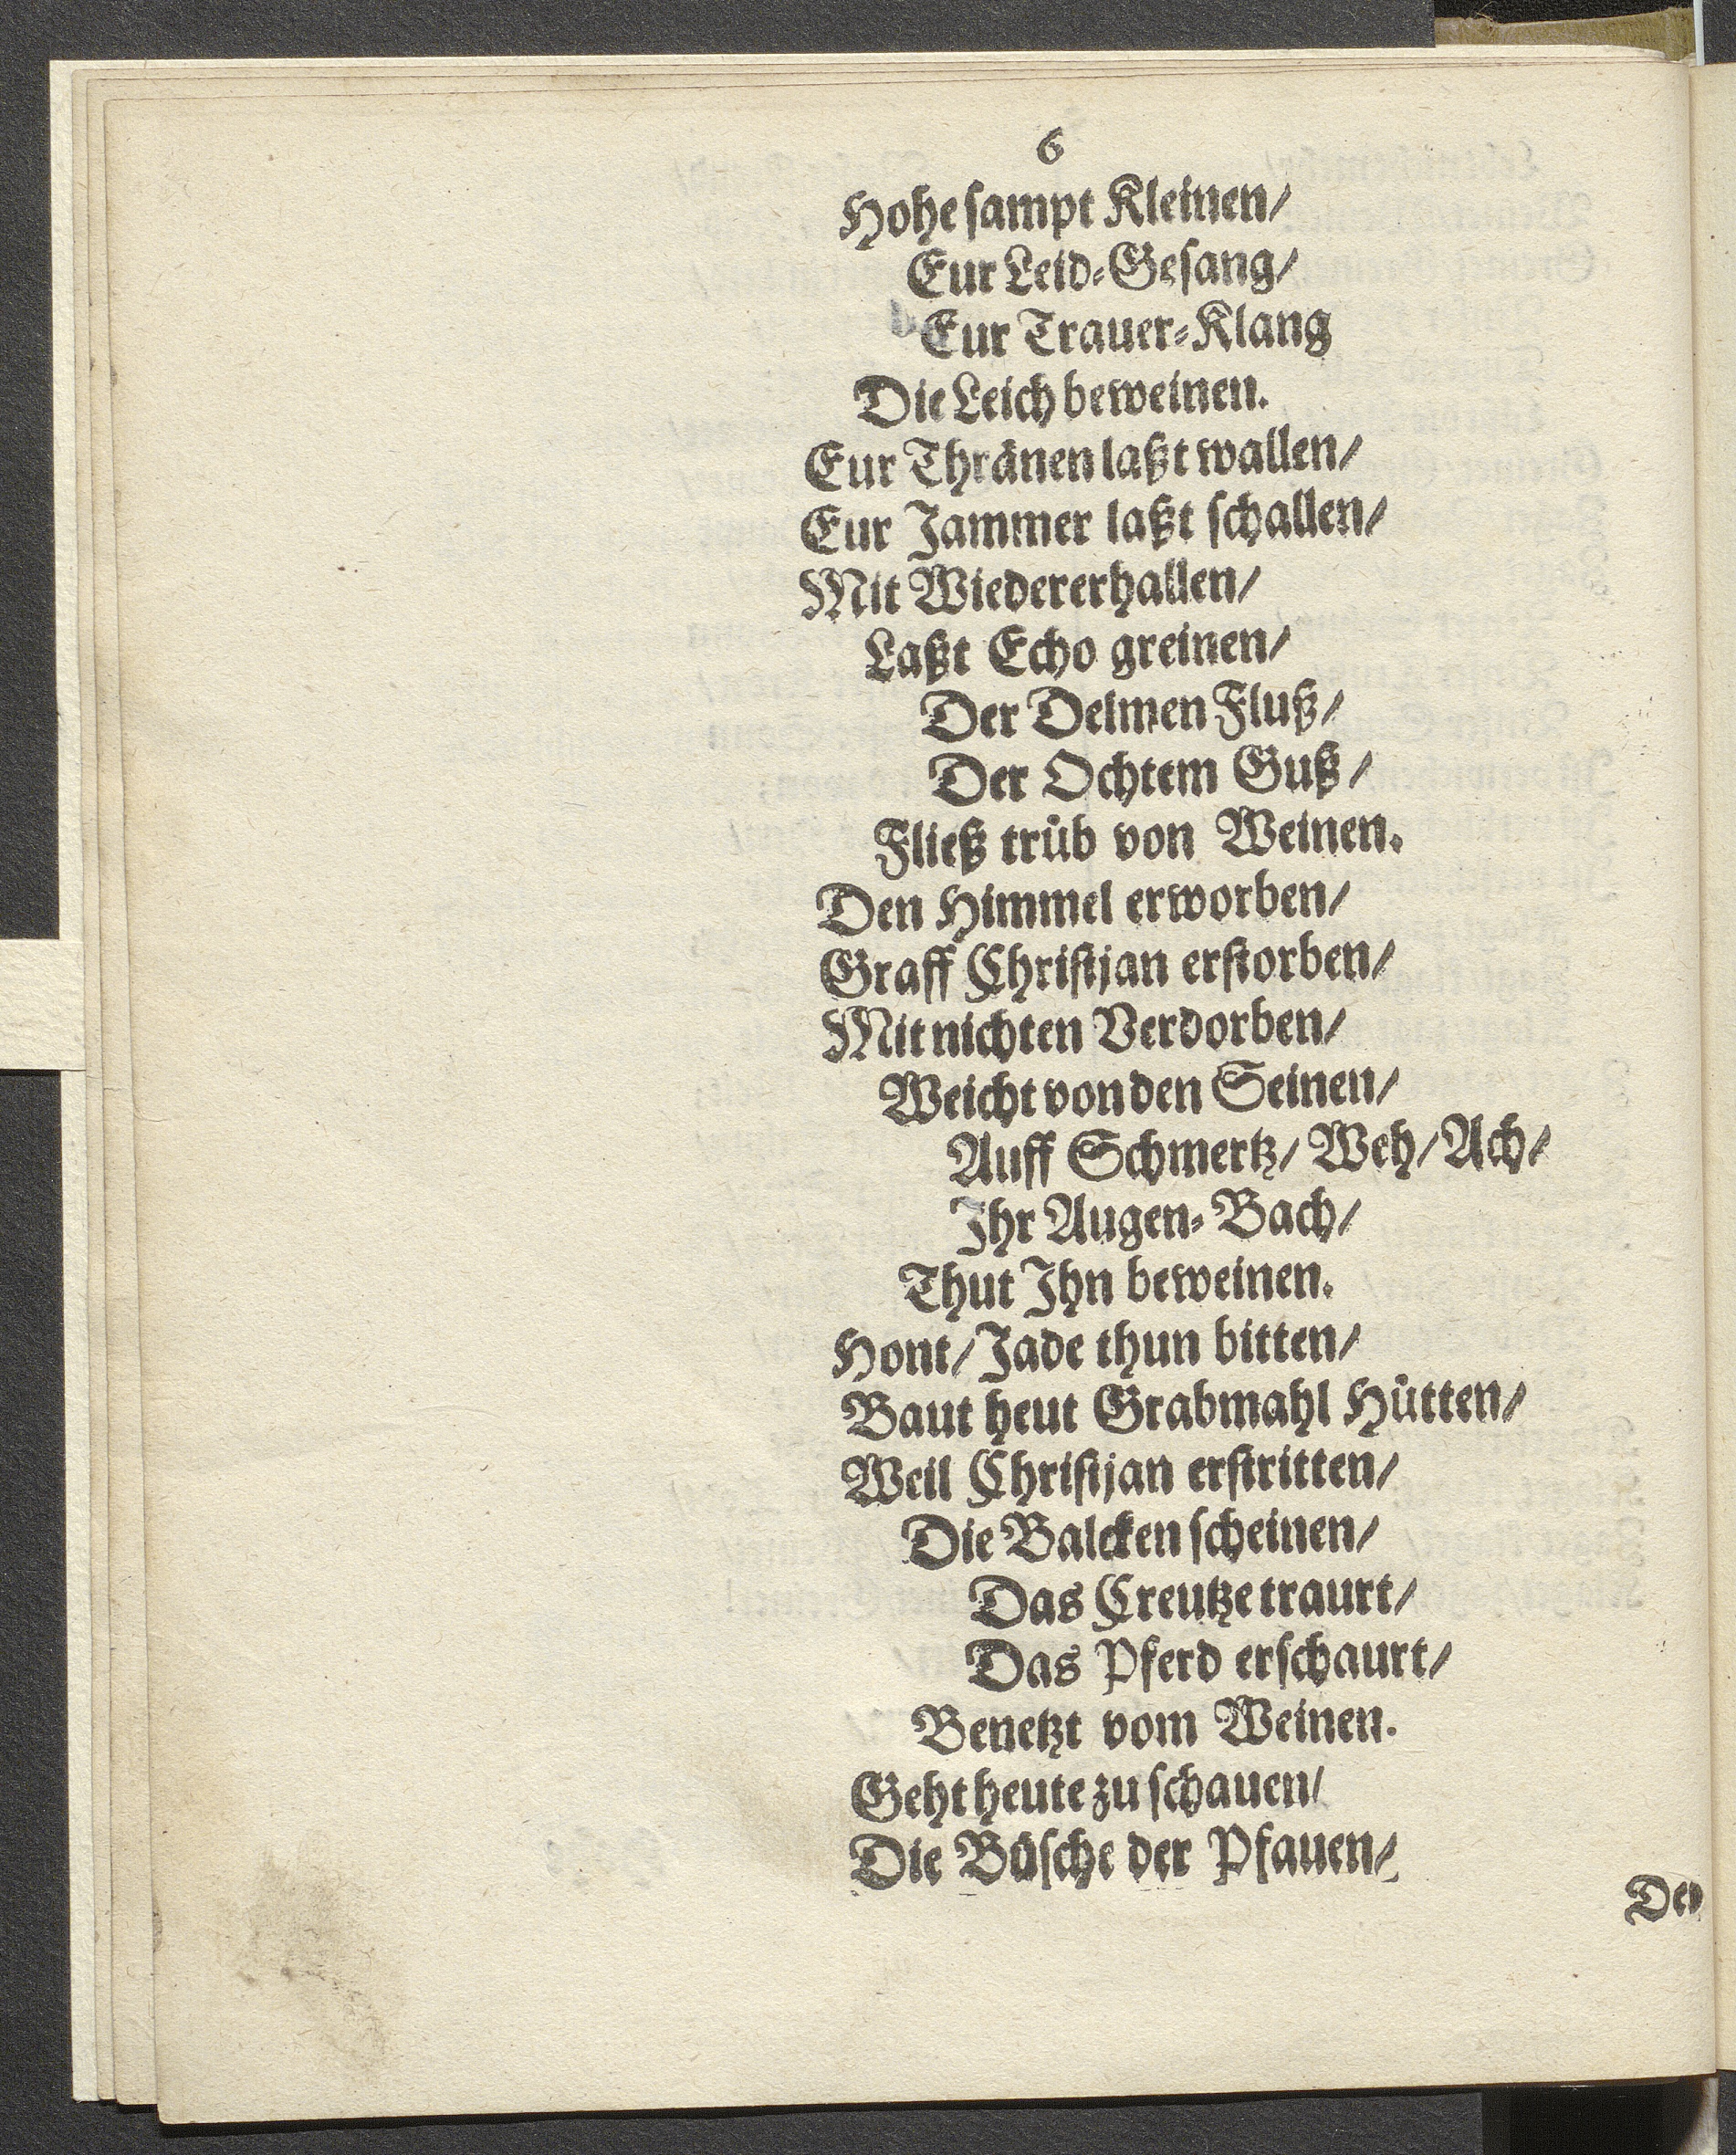 6
Hohe sampt Kleinen/
Eur Leid-Gesang/
Eur Trauer-Klang
Die Leich beweinen.
Eur Thränen laßt wallen/
Eur Jammer laßt schallen/
Mit Wiedererhallen/
Laßt Echo greinen/
Der Delmen Fluß/
Der Ochtem Guß/
Fließ trüb von Weinen.
Den Himmel erworben/
Graff Christjan erstorben/
Mit nichten Verdorben/
Weicht von den Seinen/
Auff Schmertz/ Weh/ Ach/
Ihr Augen-Bach/
Thut Ihn beweinen.
Hont/ Jade thun bitten/
Baut heut Grabmahl Hütten/
Weil Christjan erstritten/
Die Balcken scheinen/
Das Creutze traurt/
Das Pferd erschaurt/
Benetzt vom Weinen.
Geht heute zu schauen/
Die Büsche der Pfauen/